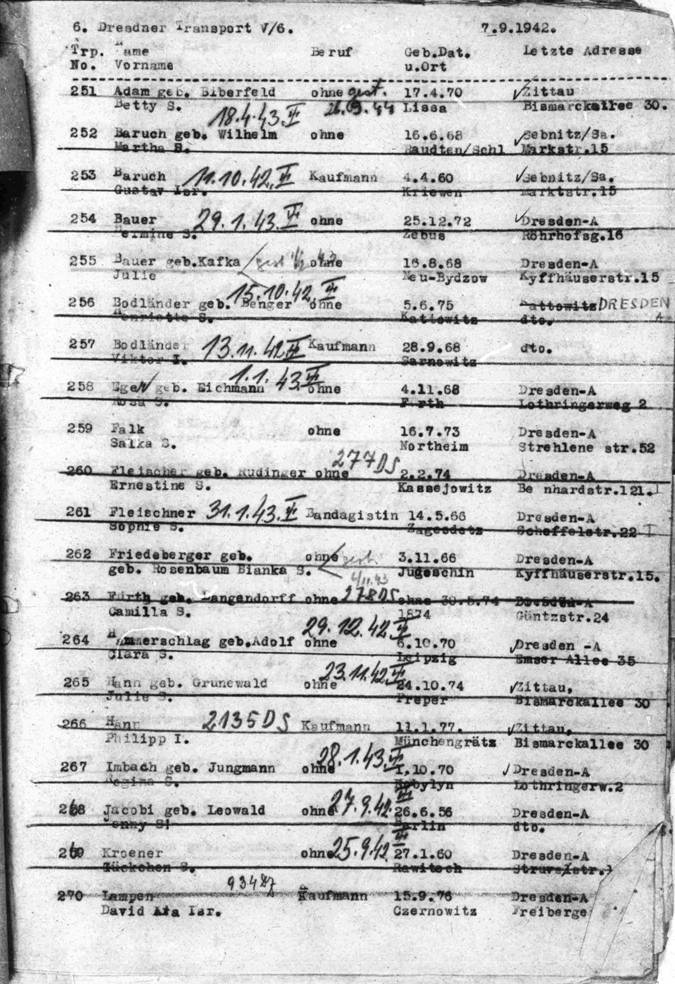 6. Dresdner Transport V/6. 7.9.1942.
Trp. Name Beruf Geb.Dat. Letzte Adresse
No. Vorname u.Ort
251 Adam geb. Biberfeld ohne gest. 17.4.70 Zittau
Betty S. 18.4.43. 44 Lissa Bismarckallee 30.
252 Baruch geb. Wilhelm ohne 16.6.68 Sebnitz/Sa.
Martha S. Raudten/Schl Markstr.15
253 Baruch 11.10.42. Kaufmann 4.4.60 Sebnitz/Sa.
Gustav Isr. Kriewen Marktstr.15
254 Bauer 29.1.43. ohne 25.12.72 Dresden-A
Hermine S. Zebus Röhrhofsg.16
255 Bauer geb.Kafka gest ohne 16.8.68 Dresden-A
Julie Neu-Bydzow Kyffhäuserstr.15
15.10.42
256 Bodländer geb. Benger ohne 5.6.75 Kattowitz DRESDEN
Henriette S. Kattowitz dto. A
257 Bodländer 13.11.42 Kaufmann 28.9.68 dto.
Viktor I. Sarnowitz
1.1.43.
258 Eger geb. Eichmann ohne 4.11.68 Dresden-A
Rosa S. Fürth Lothringerweg 2
259 Falk ohne 16.7.73 Dresden-A
Salka S. Northeim Strehlene str.52
260 Fleischer geb. Rudinger ohne 277DS 2.2.74 Dresden-A
Ernestine S. Kassejowitz Be nhardstr.121.
261 Fleischner 31.1.43. Bandagistin 14.5.66 Dresden-A
Sophie S. Scheffelstr.22
262 Friedeberger geb. ohne gest. 3.11.66 Dresden-A
geb. Rosenbaum Bianka S. Judeschin Kyffhäuserstr.15.
4/11.43
263 Fürth geb. Langendorff ohne 278DS ohne 30.5.74 Dresden-A
Camilla S. 1874 Güntzstr.24
264 Hammerschlag geb.Adolf ohne 29.12.42. 6.10.70 Dresden -A
Clara S. Leipzig Emser Allee 35
265 Hann geb. Grunewald ohne 23.11.42. 24.10.74 Zittau,
Julie S. Preper Bismarckallee 30
266 Hann 2135DS Kaufmann 11.1.77. Zittau,
Philipp I. Münchengrätz Bismarckallee 30
267 Imbach geb. Jungmann ohne 28.1.43. 1.10.70 Dresden-A
Regina S. Kobylyn Lothringerw.2
268 Jacobi geb. Leowald ohne 27.9.42. 26.6.56 Dresden-A
Jenny S. Berlin dto.
269 Kroener ohne 25.9.42. 27.1.60 Dresden-A
S. Rawitsch Struvestr.
270 Lampen 93427 Kaufmann 15.9.76 Dresden-A
David Isr. Czernowitz Freiberge